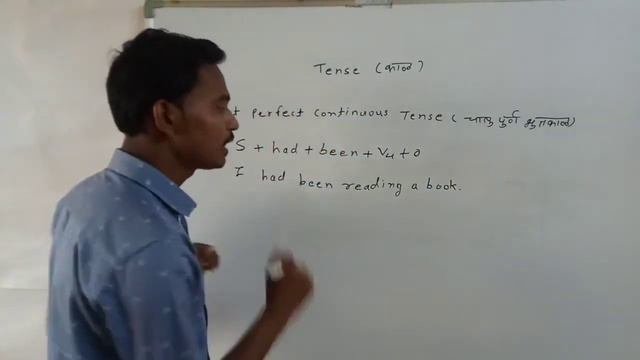 Tense (काळ)
t Perfect Continuous Tense (चालु पुर्ण भुतकाळ)
S + had + been + V4 + O
I had been reading a book.